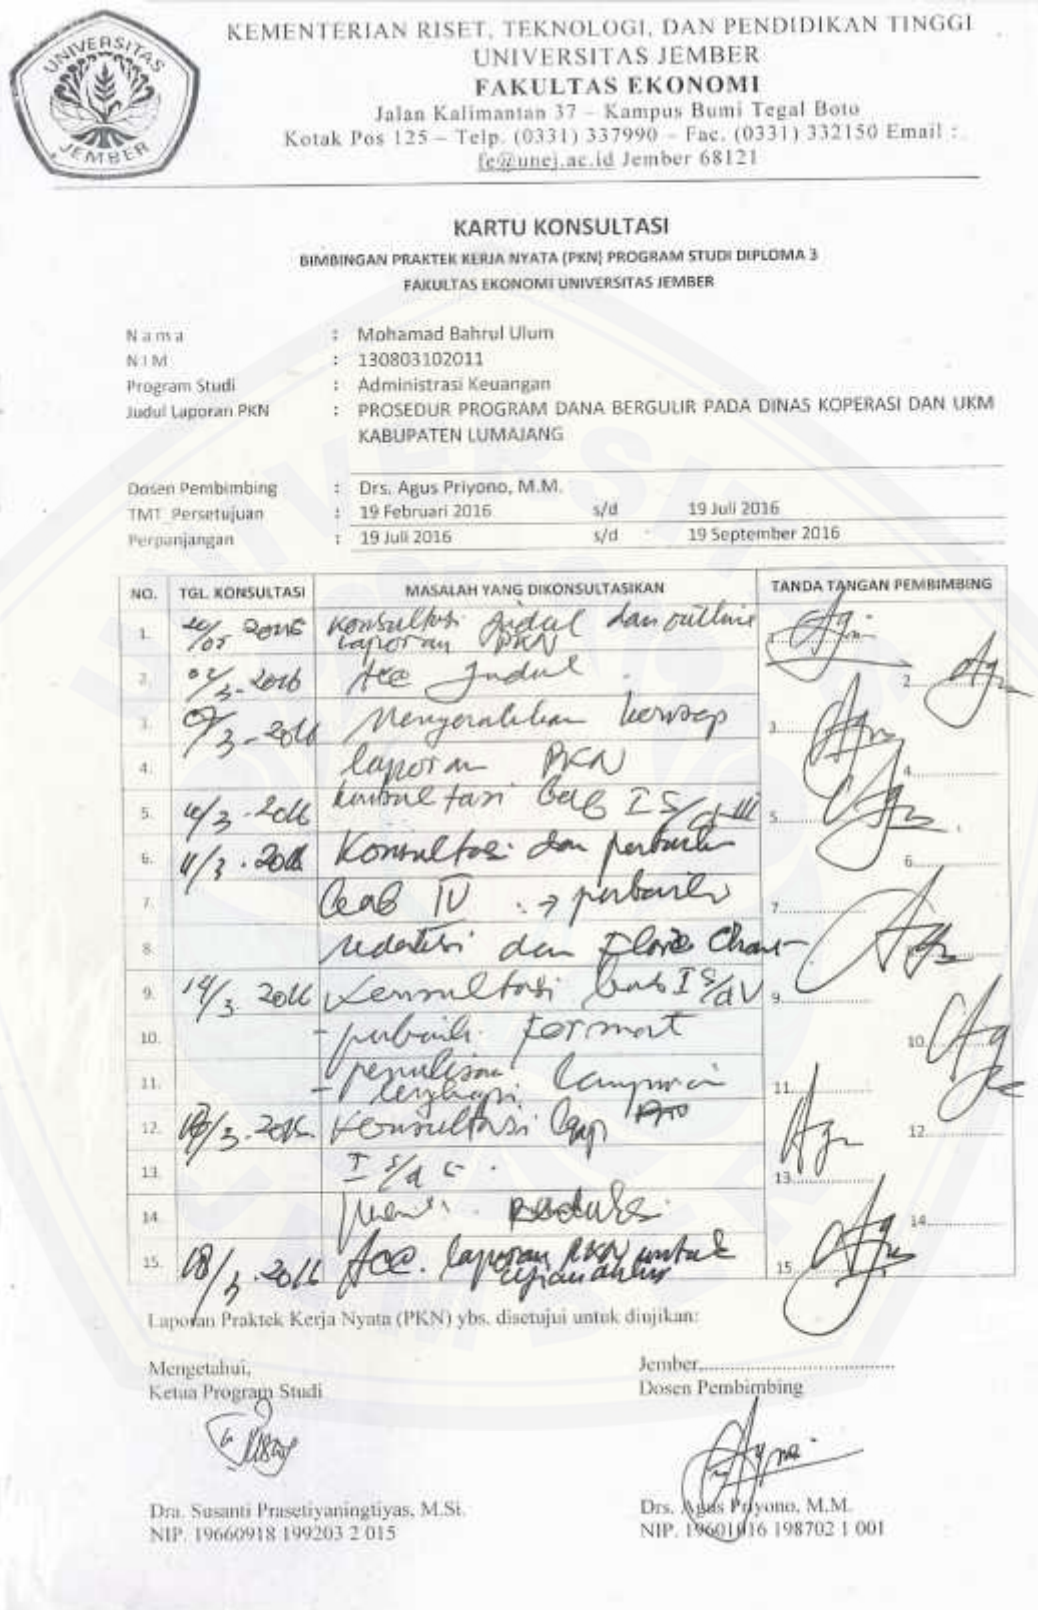 UNIVERSITAS
JEMBER
KEMENTERIAN RISET, TEKNOLOGI, DAN PENDIDIKAN TINGGI
UNIVERSITAS JEMBER
FAKULTAS EKONOMI
Jalan Kalimantan 37 – Kampus Bumi Tegal Boto
Kotak Pos 125 – Telp. (0331) 337990 – Fac. (0331) 332150 Email :
fe@unej.ac.id Jember 68121
KARTU KONSULTASI
BIMBINGAN PRAKTEK KERJA NYATA (PKN) PROGRAM STUDI DIPLOMA 3
FAKULTAS EKONOMI UNIVERSITAS JEMBER
Nama : Mohamad Bahrul Ulum
NIM : 130803102011
Program Studi : Administrasi Keuangan
Judul Laporan PKN : PROSEDUR PROGRAM DANA BERGULIR PADA DINAS KOPERASI DAN UKM
KABUPATEN LUMAJANG
Dosen Pembimbing : Drs. Agus Priyono, M.M.
TMT Persetujuan : 19 Februari 2016 s/d 19 Juli 2016
Perpanjangan : 19 Juli 2016 s/d 19 September 2016
NO. TGL. KONSULTASI MASALAH YANG DIKONSULTASIKAN TANDA TANGAN PEMBIMBING
1. Konsultasi Judul dan outline
laporan PKN
2. 02/3-2016 Acc Judul 2
3. 3-2016 Menyerahkan konsep 3
4. laporan PKN 4
5. 3-2016 konsultasi Bab I s/d III 5
6. 11/3-2016 Konsultasi dan perbaiki 6
7. Bab IV → perbaiki 7
8. redaksi dan Flow Chart
9. 14/3 2016 Konsultasi bab I s/d V 9
10. - perbaiki format 10
11. penulisan 11
- lengkapi lampiran
12. 3-2016 Konsultasi 12
13. I s/d 13
14. redaksi 14
15. 18/3-2016 Acc. laporan PKN untuk 15
ujian akhir
Laporan Praktek Kerja Nyata (PKN) ybs. disetujui untuk diujikan:
Mengetahui, Jember,
Ketua Program Studi Dosen Pembimbing
Dra. Susanti Prasetiyaningtiyas, M.Si. Drs. Agus Priyono, M.M.
NIP. 19660918 199203 2 015 NIP. 19601016 198702 1 001